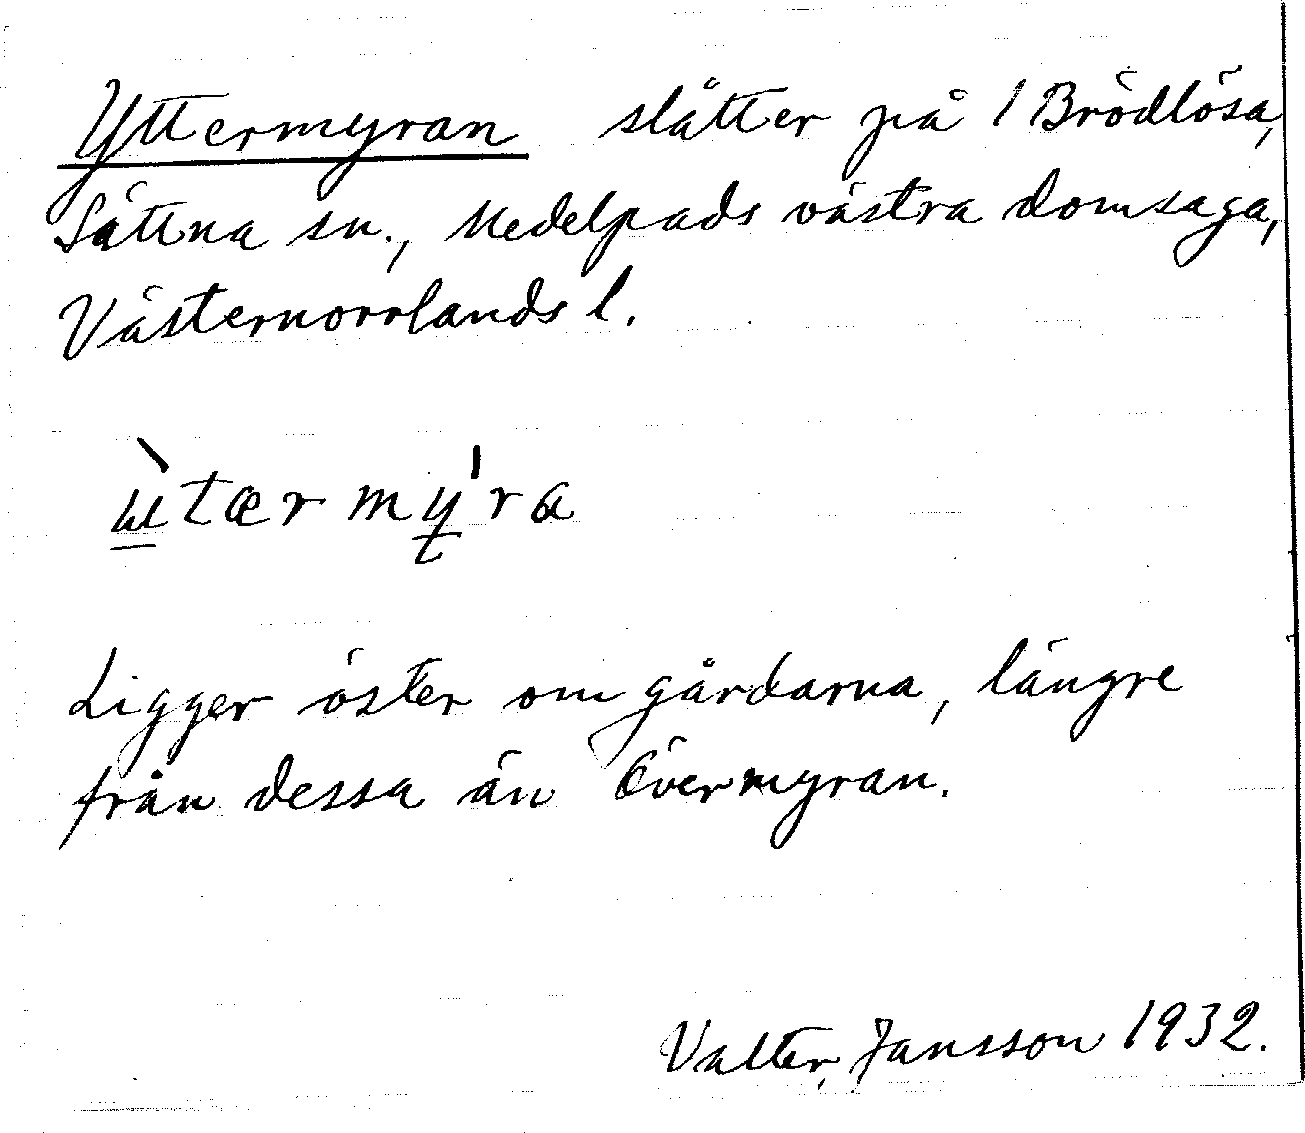 Yttermyran slåtter på 1 Brödlösa,
Sättna sn., Medelpads västra domsaga,
Västernorrlands l.
ɯ̲̀tærmý̱ra
Ligger öster om gårdarna, längre
från dessa än Övermyran.
Valter Jansson 1932.